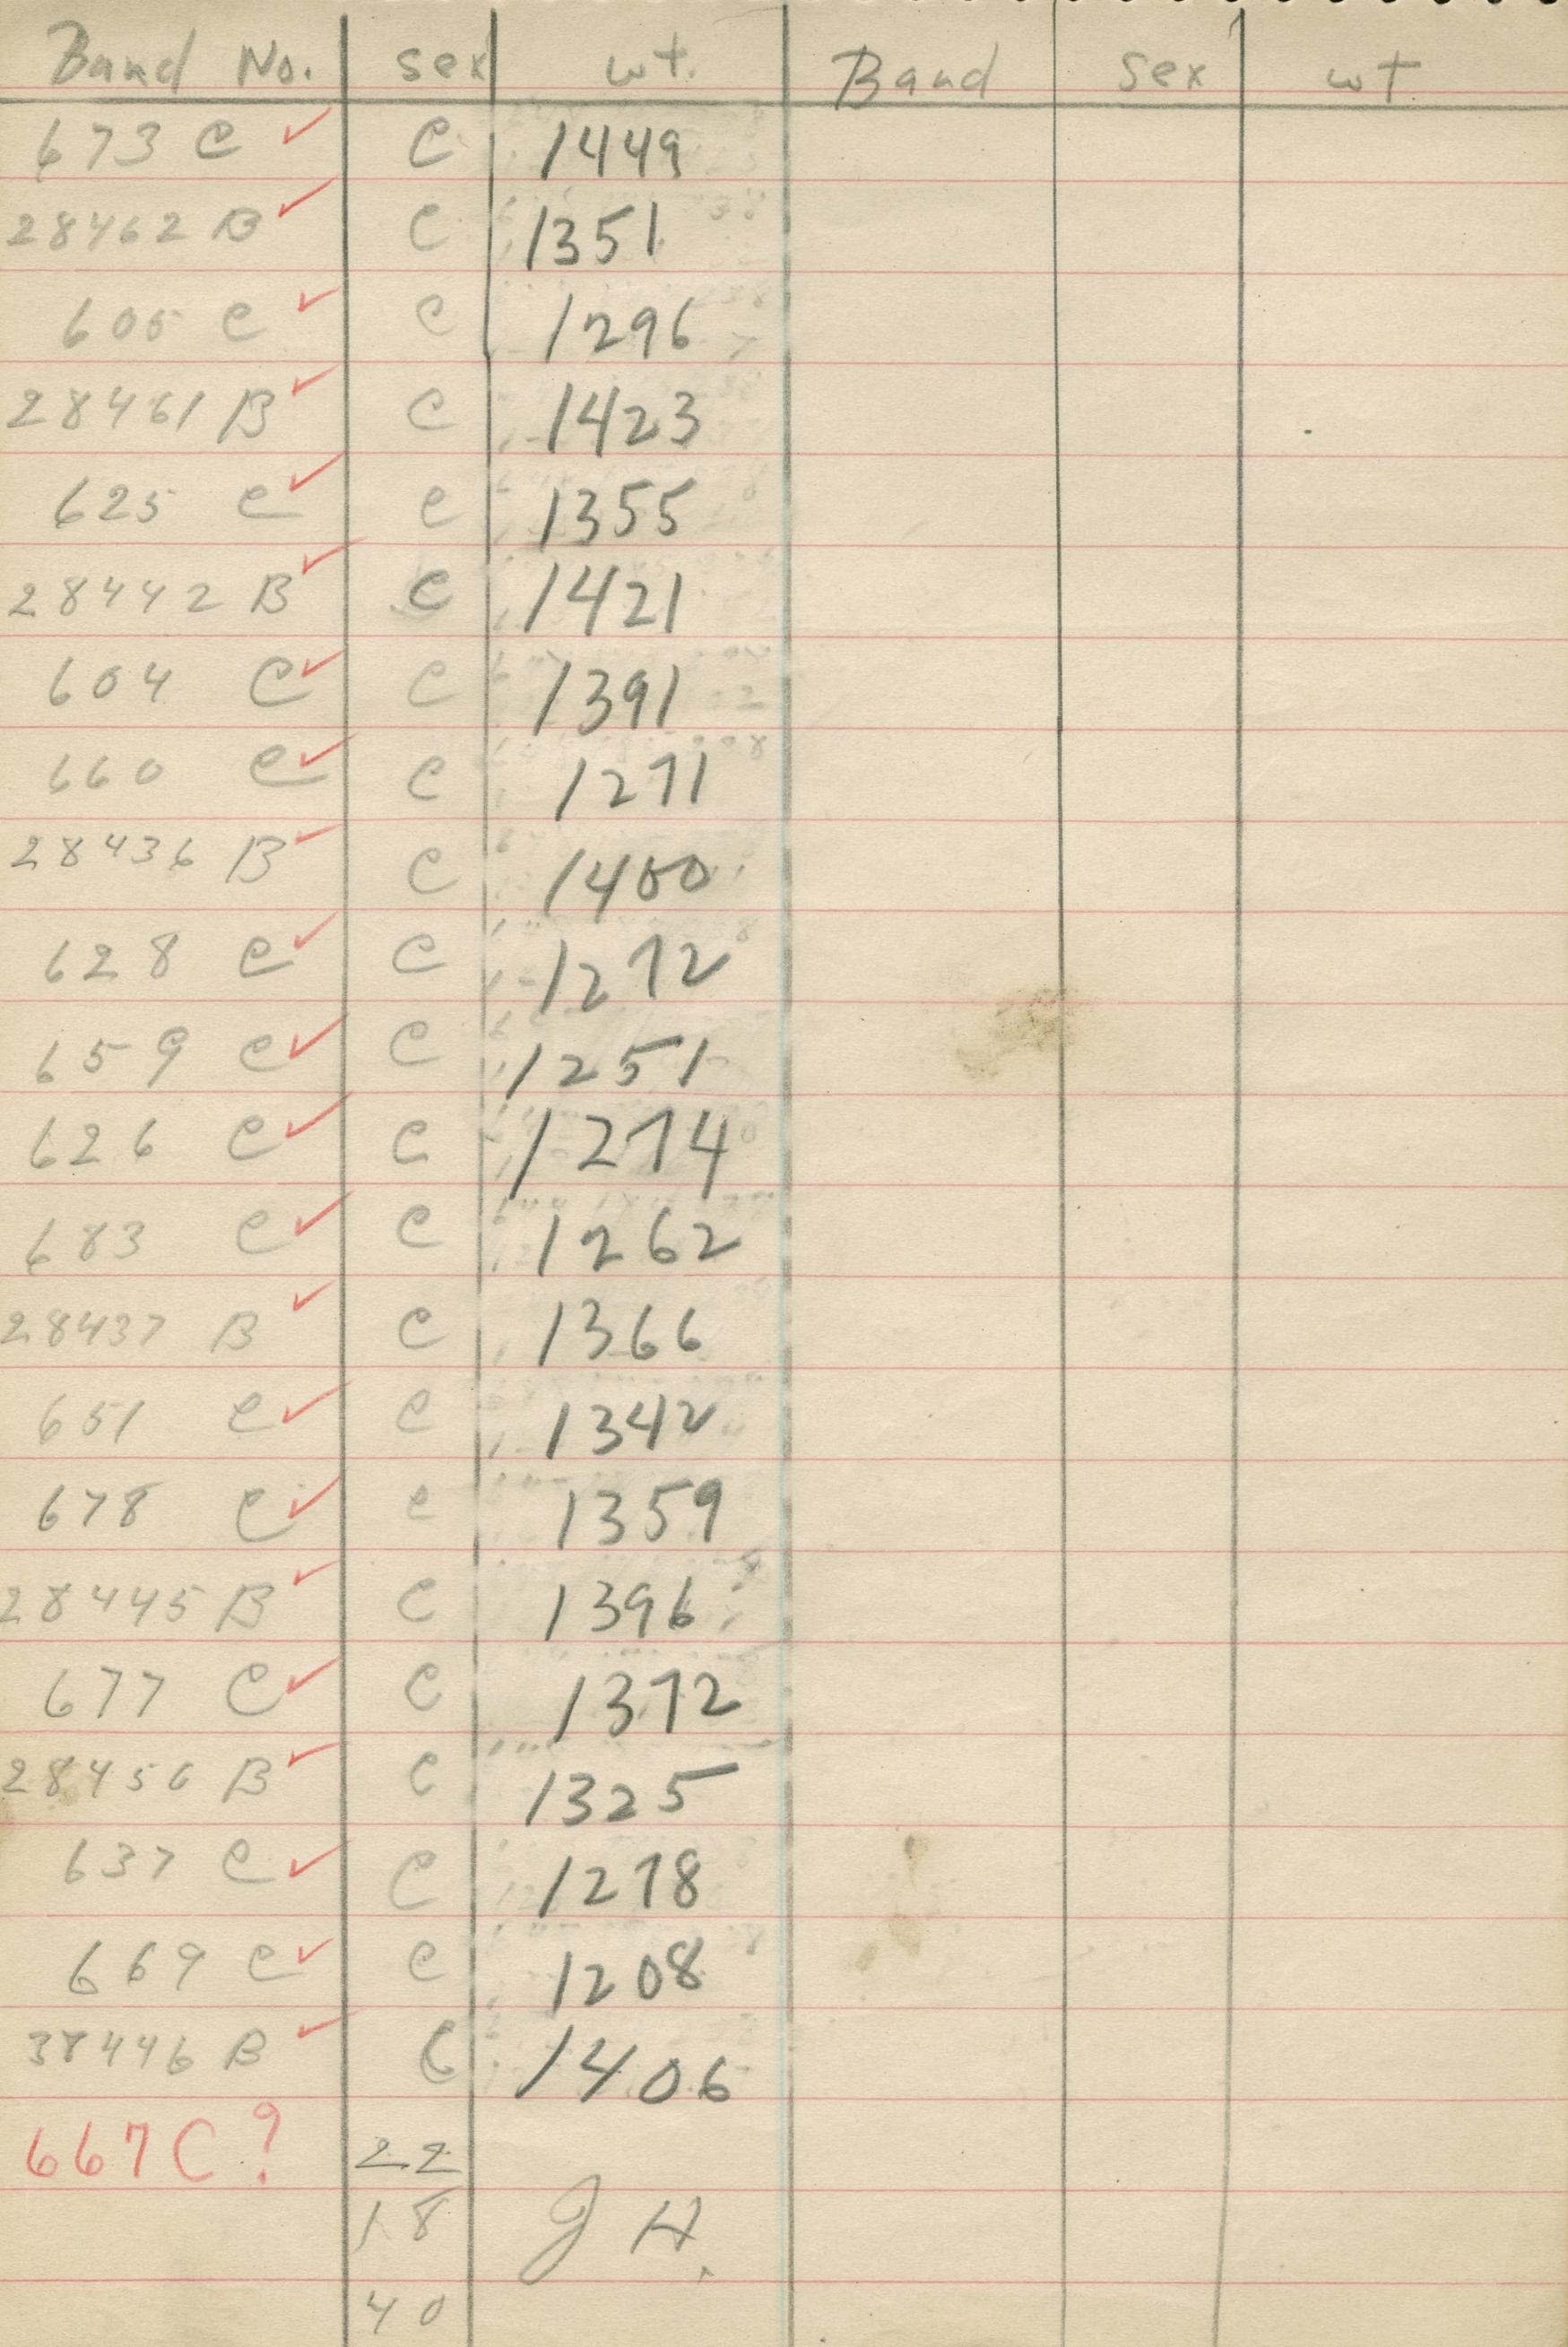 Band No. sex wt. Band sex wt
673 C ✓ C 1449
28462 B ✓ C 1351
605 C ✓ C 1296
28461 B ✓ C 1423
625 C ✓ C 1355
28442 B ✓ C 1421
604 C ✓ C 1391
660 C ✓ C 1271
28436 B ✓ C 1400
628 C ✓ C 1272
659 C ✓ C 1251
626 C ✓ C 1274
683 C ✓ C 1262
28437 B ✓ C 1366
651 C ✓ C 1342
678 C ✓ C 1359
28445 B ✓ C 1396
677 C ✓ C 1372
28456 B ✓ C 1325
637 C ✓ C 1278
669 C ✓ C 1208
38446 B ✓ C 1406
667C? 22
18 J H.
40